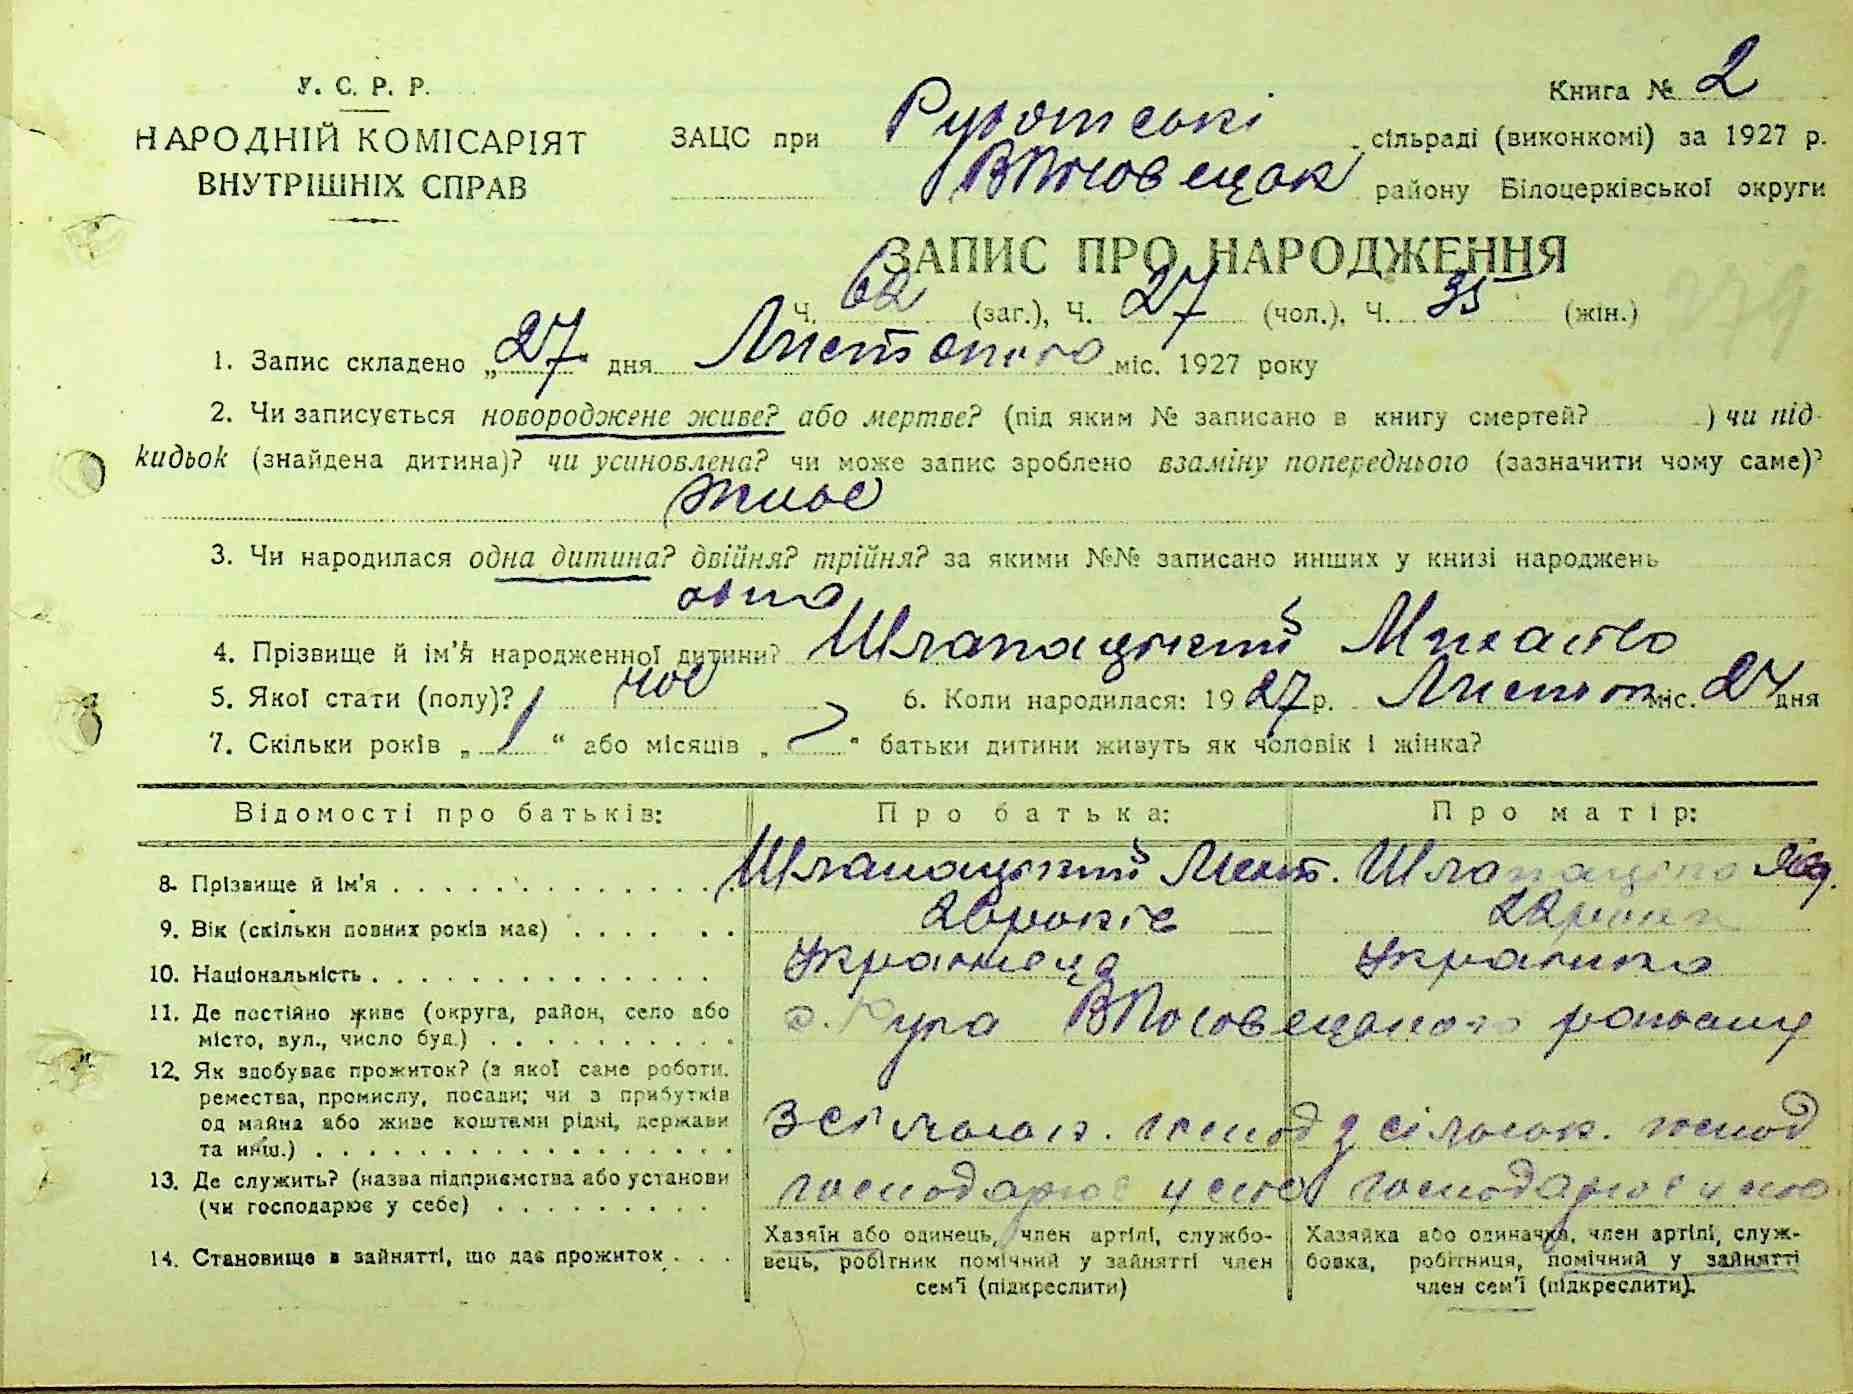 У. С. Р. Р.
НАРОДНІЙ КОМІСАРІЯТ
ВНУТРІШНІХ СПРАВ
Книга № 2
ЗАЦС при сільраді (виконкомі) за 1927 р.
району Білоцерківської округи
ЗАПИС ПРО НАРОДЖЕННЯ
Ч. 62 (заг.), Ч. 27 (чол.), Ч. 35 (жін.)
1. Запис складено „27" дня Листопада міс. 1927 року
2. Чи записується новороджене живе? або мертве? (під яким № записано в книгу смертей? ) чи під-
кидьок (знайдена дитина)? чи усиновлена? чи може запис зроблено взаміну попереднього (зазначити чому саме)?
живе
3. Чи народилася одна дитина? двійня? трійня? за якими №№ записано инших у книзі народжень
одна
4. Прізвище й ім'я народженної дитини? Шлапацький Михайло
5. Якої стати (полу)? чол 6. Коли народилася: 1927 р. Листоп міс. 24 дня
7. Скільки років „1" або місяців „ " батьки дитини живуть як чоловік і жінка?
Відомості про батьків: Про батька: Про матір:
8. Прізвище й ім'я Шлапацький Шлапацька
9. Вік (скільки повних років має) 26 років 22 роки
10. Національність Українець Українка
11. Де постійно живе (округа, район, село або
місто, вул., число буд.) с. Руда району
12. Як здобуває прожиток? (з якої саме роботи.
ремества, промислу, посади; чи з прибутків
од майна або живе коштами рідні, держави
та инш.) З сільськ. господ з сільськ. господ
13. Де служить? (назва підприємства або установи
(чи господарює у себе) господарює у себе господарює у себе
14. Становище в зайнятті, що дає прожиток
Хазяїн або одинець, член артілі, службо-
вець, робітник помічний у зайнятті член
сем'ї (підкреслити)
Хазяйка або одиначка, член артілі, служ-
бовка, робітниця, помічний у зайнятті
член сем'ї (підкреслити).